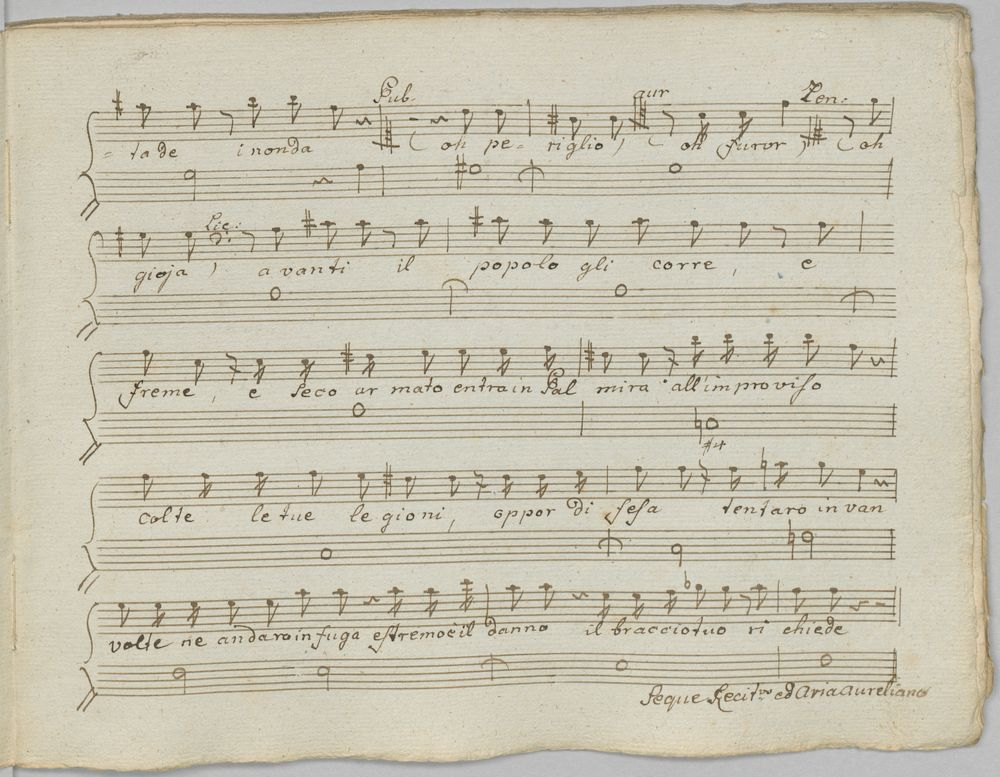 Pub. aur Zen:
-ta de inonda (oh pe-riglio) (oh furor) (oh
Lic:
gioja) avanti il popolo gli corre, e
freme, e seco armato entra in Palmira all'improviso
colte le tue legioni, oppor difesa tentaro in van
volte ne andaro in fuga estremo è il danno il braccio tuo richiede
Segue Recit.vo ed Aria Aureliano